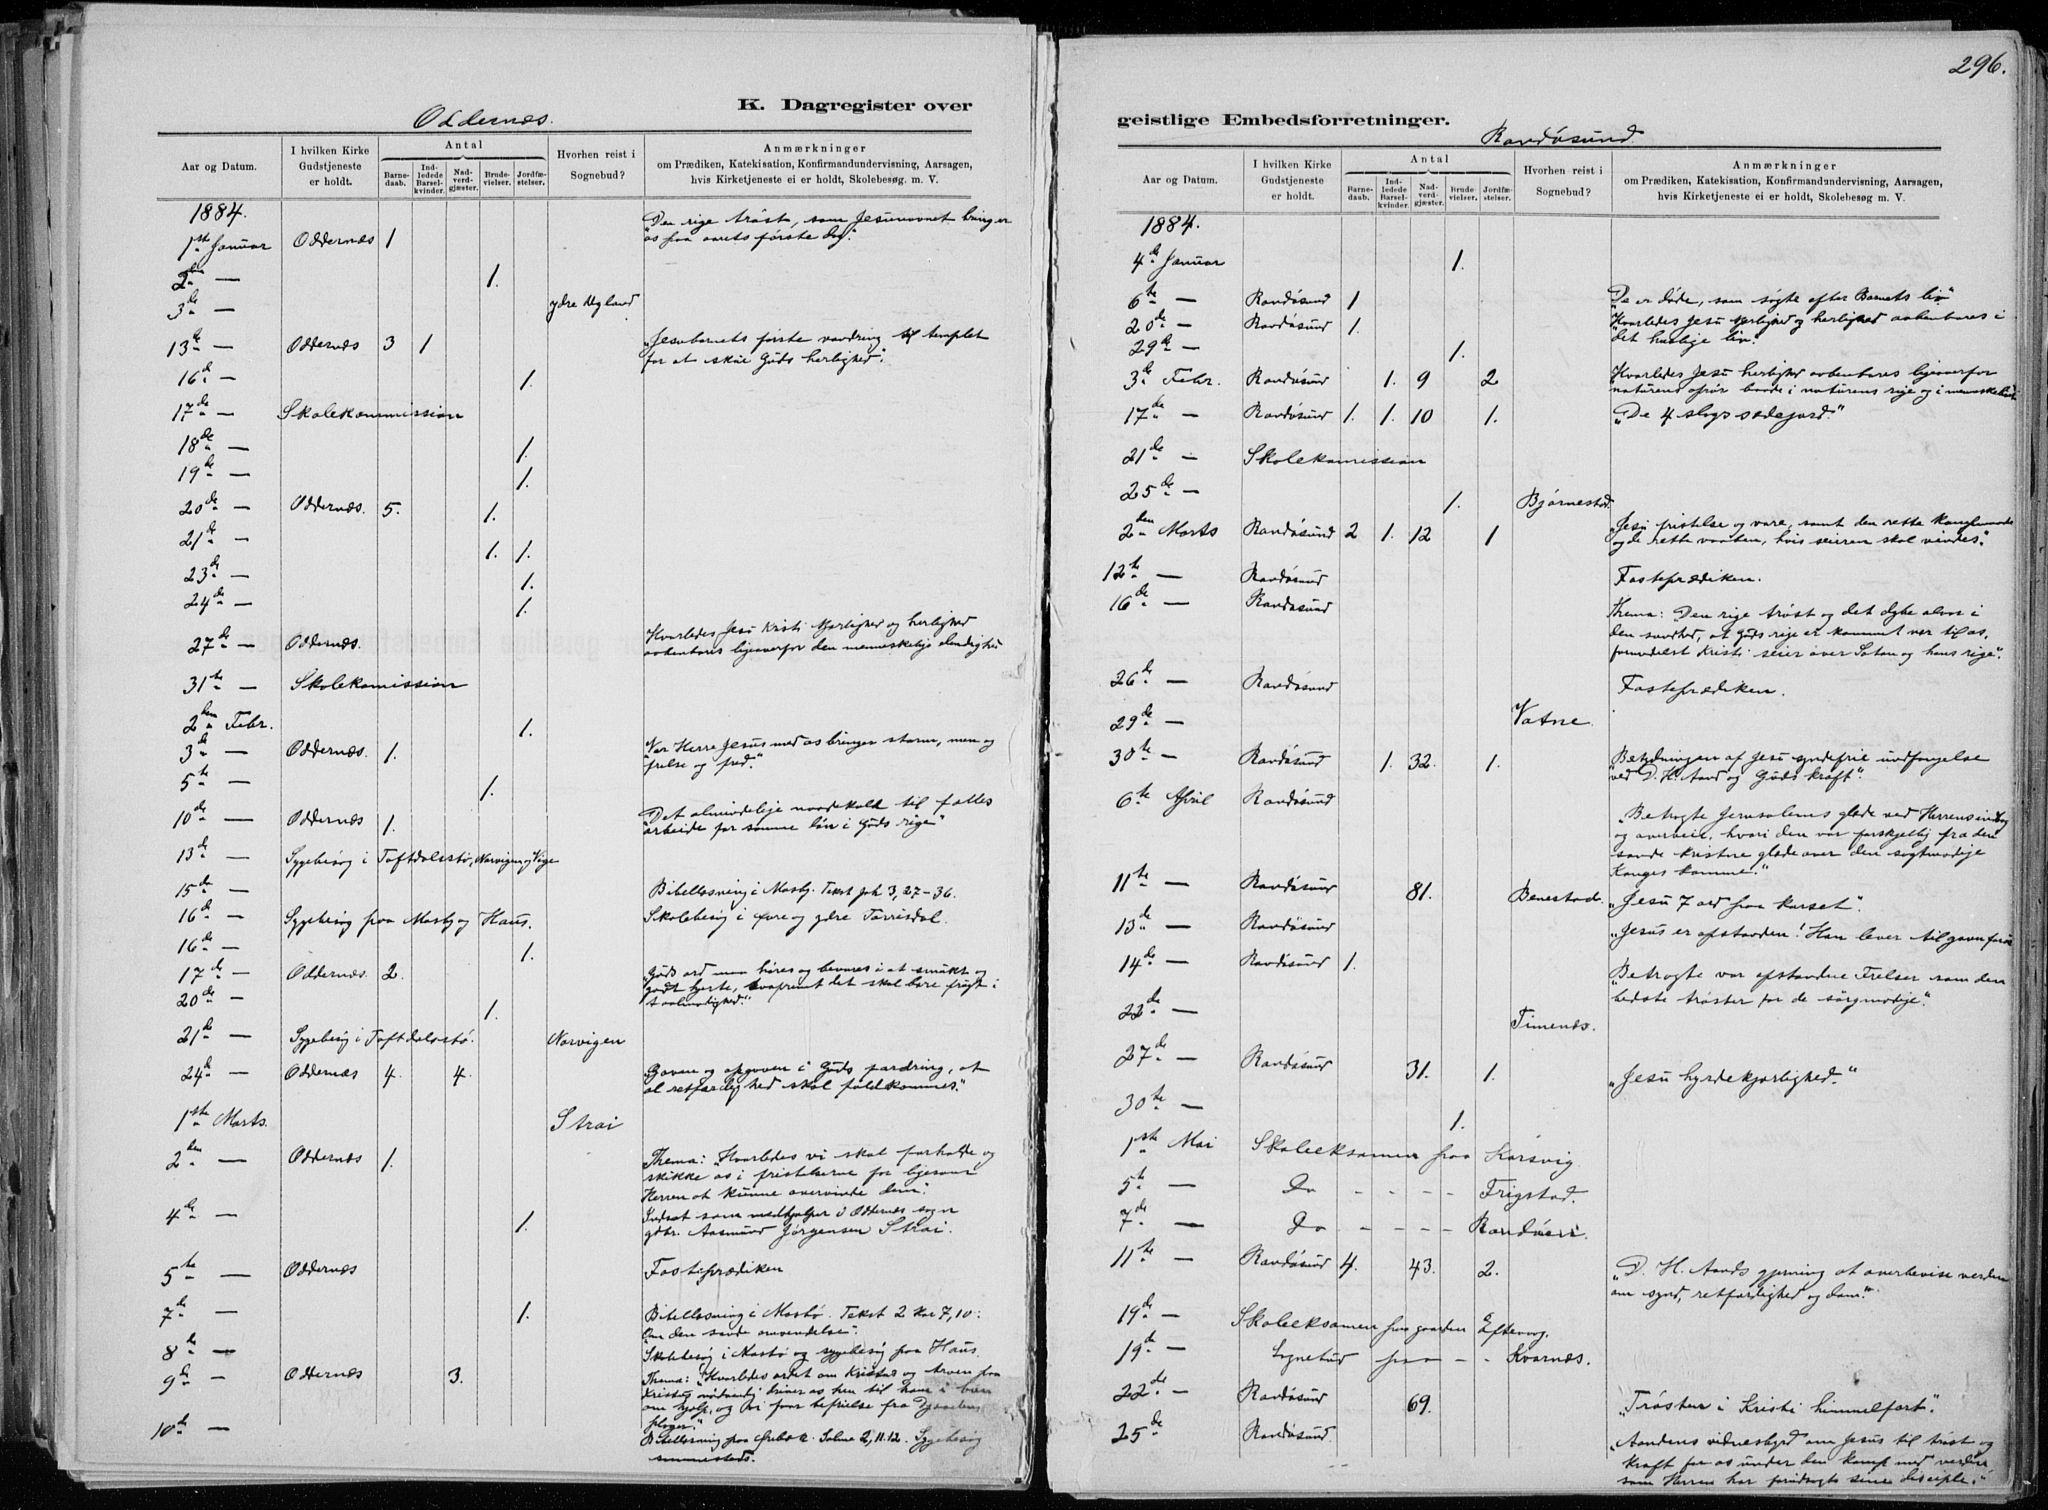 296.
K. Dagregister over
Oddernæs.
Aar og Datum.
I hvilken Kirke Gudstjeneste er holdt.
Antal
Barnedaab.
Indledede Barselkvinder.
Nadverdgjæster.
Brudevielser.
Jordfæstelser.
Hvorhen reist i Sognebud?
Anmærkninger
om Prædiken, Katekisation, Konfirmandundervisning, Aarsagen,
hvis Kirketjeneste ei er holdt, Skolebesøg m. V.
1884.
"Den rige trøst, som Jesunavnet bringer
os paa aarets første dag."
1ste Januar Oddernæs 1
2den — 1.
3de — ydre Ugland
13de — Oddernæs 3 1 "Jesubarnets første vandring til templet
for at skue Guds herlighed".
16de — 1.
17de — Skolekommission
18de — 1.
19de — 1.
20de — Oddernæs. 5. 1.
21de — 1. 1.
23de — 1.
24de — 1.
27de — Oddernæs. Hvorledes Jesu Kristi kjærlighed og herlighed
aabenbares ligeoverfor den menneskelige elendighed
31te — Skolekomission
2den Febr. 1.
3de — Oddernæs. 1. "Vor Herre Jesus med os bringer storm, men og
frelse og fred."
5te — 1.
10de — Oddernæs 1. "Det almindelige naadekald til fælles
arbeide for samme løn i Guds rige"
13de — Sygebesøg i Toftdalsstø, Narvigen og Vige
15de — Bibellæsning i Mosby. Tekst Joh 3,27–36.
16de — Sygebesøg paa Mosby og Haus. Skolebesøg i øvre og ydre Torrisdal.
16de — 1.
17de — Oddernæs. 2. "Guds ord maa høres og bevares i et smukt og
godt hjerte, hvis det skal bære frugt i
taalmodighed."
20de — 1.
21de — Sygebesøg i Toftdalsstø. Narvigen
24de — Oddernæs 4. 4. "Gaven og opgaven i Guds fordring, at
al retfærdighed skal fuldkommes."
1ste Marts. Strai
2den — Oddernæs 1. Thema: "Hvorledes vi skal forholde og
skikke os i fristelserne for ligesom
Herren at kunne overvinde dem".
4de — 1. Indsat som medhjelper i Oddernæs sogn
gdbr. Aasmund Jørgensen Strai.
5te — Oddernæs Fasteprædiken
7de — 1. Bibellæsning i Mosbø. Tekst 2 Kor 7,10:
"Om den sande omvendelse".
8de — Skolebesøg i Mosbø og sygebesøg paa Haus.
9de — Oddernæs 3. Thema: "Hvorledes ordet om Kristus og troen paa
Kristus nødvendig driver os hen til ham i bøn
om hjælp, og vi faar befrielse fra Djævelens
plager."
10de — Bibellæsning paa 2,11.12. Sygebesøg
geistlige Embedsforretninger.
Randøsund.
Aar og Datum.
I hvilken Kirke Gudstjeneste er holdt.
Antal
Barnedaab.
Indledede Barselkvinder.
Nadverdgjæster.
Brudevielser.
Jordfæstelser.
Hvorhen reist i Sognebud?
Anmærkninger
om Prædiken, Katekisation, Konfirmandundervisning, Aarsagen,
hvis Kirketjeneste ei er holdt, Skolebesøg m. V.
1884.
4de Januar 1.
6te — Randøsund 1 "De er døde, som søgte efter Barnets liv"
20de — Randøsund 1. "Hvorledes Jesu kjærlighed og herlighed aabenbares i
det huslige liv".
29de — 1.
3de Febr. Randøsund 1. 9 2 "Hvorledes Jesu herlighed aabenbares ligeoverfor
naturens oprør baade i naturens rige og i menneskelivet
17de — Randøsund 1. 1. 10 1. "De 4 slags sædejord."
21de — Skolekomission
25de — 1. Bjørnestad.
2den Marts Randøsund 2 1. 12 1 "Jesu fristelse og vore, samt den rette kampmaade
og de rette vaaben, hvis seieren skal vindes."
12te — Randøsund Fasteprædiken.
16de — Randøsund Thema: "Den rige trøst og det dybe alvor i
den sandhed, at Guds rige er kommet nær til os,
formedelst Kristi seier over Satan og hans rige".
26de — Randøsund Fasteprædiken.
29de — Vatne.
30te — Randøsund 1. 32. 1. "Betydningen af Jesu syndefrie undfangelse
ved D. H. Aand og Guds kraft".
6te April Randøsund
"Betragte Jerusalems glæde ved Herrens indtog
og overveie, hvori den var forskjellig fra den
sande kristne glæde over den sagtmodige
Konges komme."
11te — Randøsund 81. Benestad. "Jesu 7 ord paa korset".
13de — Randøsund "Jesus er opstanden! Han lever til gavn for os
14de — Randøsund 1. "Betragte vor opstandne Frelser som den
bedste trøster for de sørgmodige".
22de — Timenæs.
27de — Randøsund 31. 1. "Jesu hyrdekjærlighed."
30te — 1.
1ste Mai Skoleeksamen paa Korsvig.
5te — Do - - - - Frigstad.
7de — Do - - - - Randøen.
11te — Randøsund 4. 43. 2. "D. H. Aands gjerning at overbevise verden
om synd, retfærdighed og dom."
19de — Skoleeksamen paa gaarden Eftevaag.
19de — Sognebud paa - - Kvarnæs.
22de — Randøsund 69. "Trøsten i Kristi himmelfart".
25de — Randøsund. "Aandens vidnesbyrd om Jesus til trøst og
kraft for os under den kamp med verden
som Herren har forudsagt sine disciple."